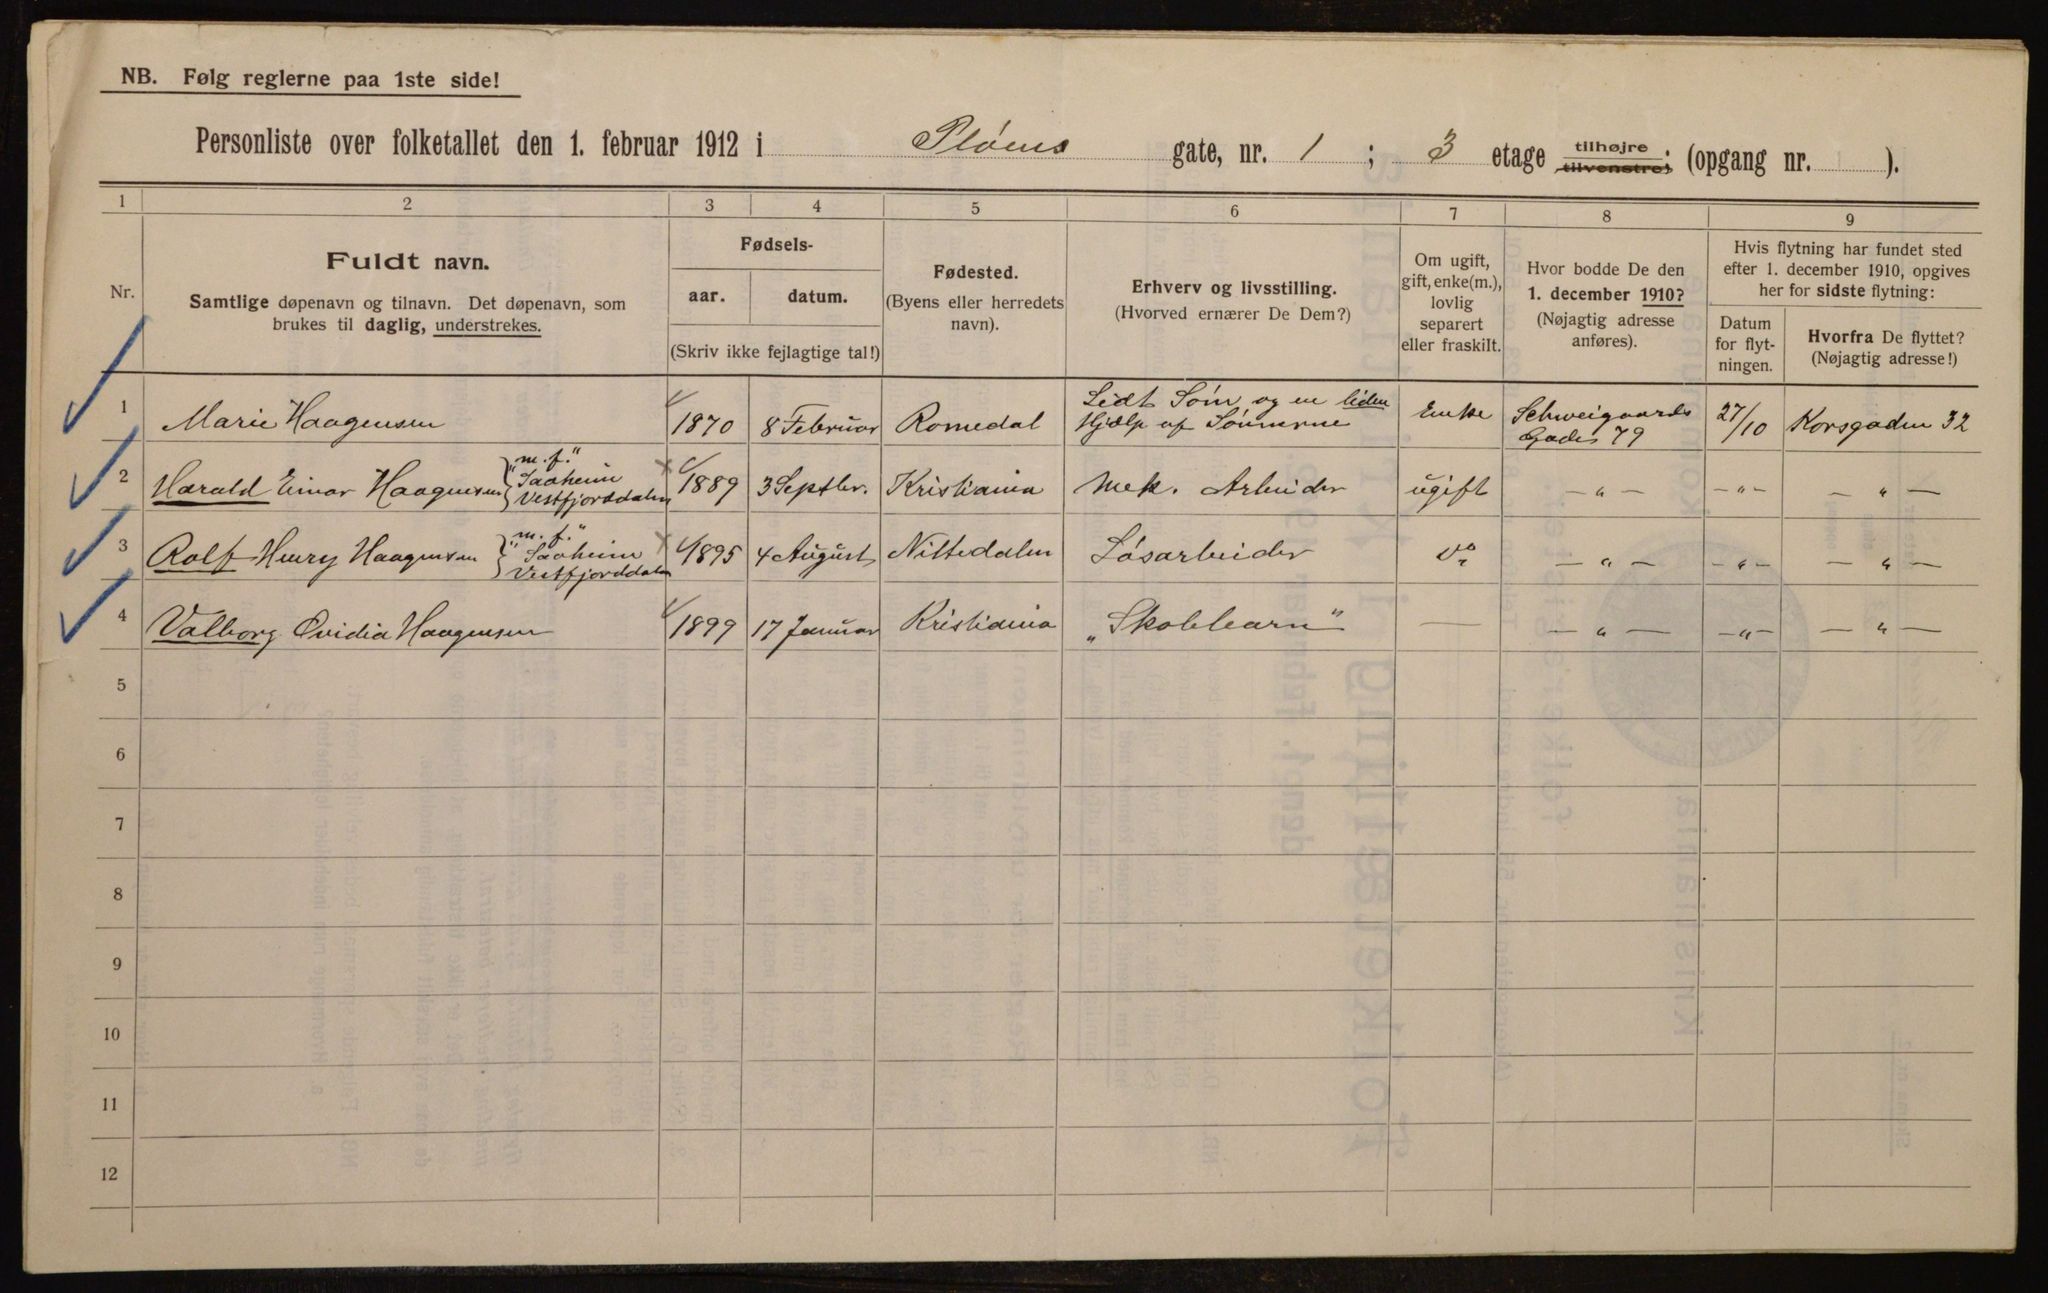 NB. Følg reglerne paa 1ste side!
Personliste over folketallet den 1. februar 1912 i Pløens gate, nr. 1 ; 3 etage tilhøjre tilvenstre; (opgang nr. ).
1 2 3 4 5 6 7 8 9
Nr.
Fuldt navn.
Samtlige døpenavn og tilnavn. Det døpenavn, som
brukes til daglig, understrekes.
Fødsels-
aar. datum.
(Skriv ikke fejlagtige tal!)
Fødested.
(Byens eller herredets
navn).
Erhverv og livsstilling.
(Hvorved ernærer De Dem?)
Om ugift,
gift, enke(m.),
lovlig
separert
eller fraskilt.
Hvor bodde De den
1. december 1910?
(Nøjagtig adresse
anføres).
Hvis flytning har fundet sted
efter 1. december 1910, opgives
her for sidste flytning:
Datum
for flyt-
ningen.
Hvorfra De flyttet?
(Nøjagtig adresse!)
1 Marie Haagensen 1870 8 Februar Romedal Lidt Søm og en liden Hjælp af Sønnerne Enke Schweigaards Gades 79 27/10 Korsgaden 32
2 Harald Einar Haagensen "m. f." Saaheim Vestfjorddalen 1889 3 Septbr. Kristiania Mek. Arbeider ugift — „ — — „ — — „ —
3 Rolf Henry Haagensen "m. f." Saaheim Vestfjorddalen 1895 4 August Nittedalen Løsarbeider do — „ — — „ — — „ —
4 Valborg Ovidia Haagensen 1899 17 Januar Kristiania „Skolebarn" — — „ — — „ — — „ —
5
6
7
8
9
10
11
12